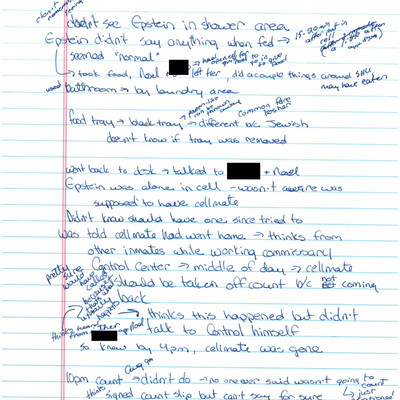 doesn't see Epstein in shower area
Epstein didn't say anything when fed → 15-20 min in
seemed "normal"
→ took food, Noel let her, did a couple things around SHU
may have eaten
used bathroom → by laundry area
common fare
kosher
food tray → black tray → different b/c Jewish
doesn't know if tray was removed
went back to desk → talked to + Noel
Epstein was alone in cell - wasn't aware was
supposed to have cellmate
Didn't know should have one since tried to
was told cellmate had went home → thinks from
other inmates while working commissary
pretty sure would have called
Control Center → middle of day → cellmate
should be taken off count b/c not coming
back
because that's what usually happens
→ thinks this happened but didn't
talk to Control himself
thinks heard from other or Noel
so knew by 4pm, cellmate was gone
Aug 9th
10pm count → didn't do → no one ever said wasn't going to count
thinks signed count slip but can't say for sure
just